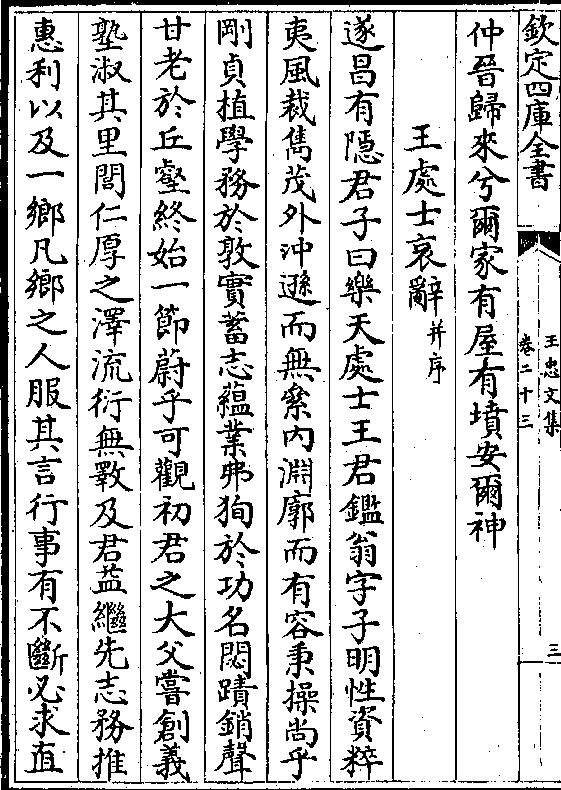 欽定四庫全書
王忠文集
卷二十三
三
仲晉歸來兮爾家有屋有墳安爾神
王處士哀辭并序
遂昌有隱君子曰樂天處士王君鑑翁字子明性資粹
夷風裁雋茂外沖遜而無系內淵廓而有容秉操尚乎
剛貞植學務於敦實蓄志蘊業弗狥於功名閟蹟銷聲
甘老於丘壑終始一節蔚乎可觀初君之大父嘗創義
塾淑其里閭仁厚之澤流衍無斁及君益繼先志務推
惠利以及一鄉凡鄉之人服其言行事有不斷必求直